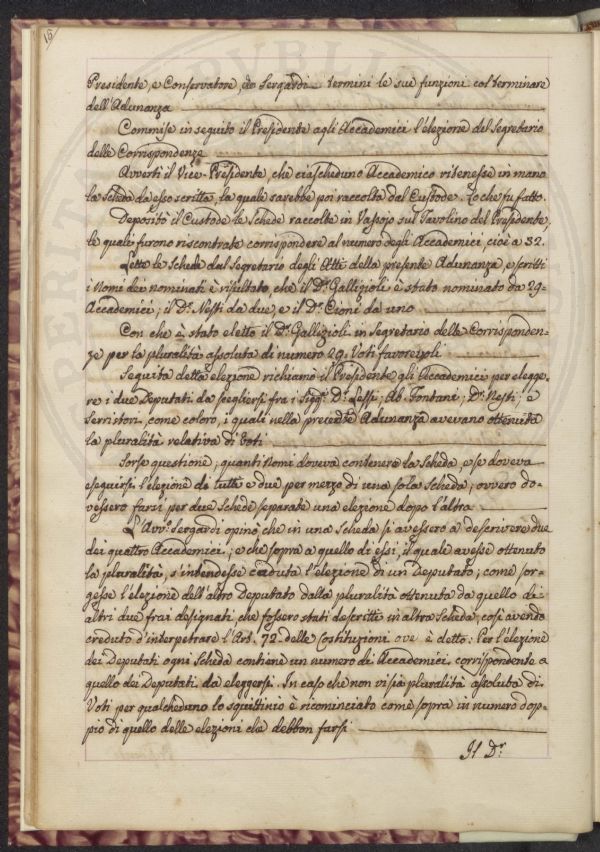 16
Presidente, e Conservatore, do Sergardi termini le sue funzioni col terminare
dell'Adunanza
Commise in seguito il Presidente agli Accademici l'elezione del Segretario
delle Corrispondenze
Avvertì il Vice-Presidente, che ciascheduno Accademico ritenesse in mano
la Scheda da esso scritta, la quale sarebbe poi raccolta dal Custode. Lo che fu fatto.
Depositò il Custode le Schede raccolte in Vassojo sul Tavolino del Presidente,
le quali furono riscontrate corrispondere al numero degli Accademici, cioè a 32.
Lette le Schede dal Segretario degli Atti della presente Adunanza, e scritti
i Nomi dei nominati è risultato, che il Dr. Gallizioli è stato nominato da 29.
Accademici; il Dr. Nesti da due, e il Dr. Cioni da uno
Con che è stato eletto il Dr. Gallizioli in Segretario delle Corrisponden-
ze per la pluralità assoluta di numero 29. Voti favorevoli
Seguita detta elezione richiamò il Presidente gli Accademici per elegge-
re i due Deputati da scegliersi fra i Sigg.ri Dr. Lessi; Ab. Fontani; Dr. Nesti; e
Serristori, come coloro, i quali nella precedte Adunanza avevano ottenuta
la pluralità relativa di Voti
Sorse questione, quanti Nomi doveva contenere la Scheda, e se doveva
eseguirsi l'elezione di tutti e due per mezzo di una sola Scheda; ovvero do-
vessero farsi per due Schede separate una elezione dopo l'altra
L'Avv.o Sergardi opinò, che in una Scheda si avessero a descrivere due
dei quattro Accademici; e che sopra a quello di essi, il quale avesse ottenuto
la pluralità, s'intendesse caduta l'elezione di un Deputato; come sor-
gesse l'elezione dell'altro Deputato dalla pluralità ottenuta da quello di
altri due frai designati, che fossero stati descritti in altra Scheda, così avendo
creduto d'interpetrare l'Art. 72. delle Costituzioni ove è detto: Per l'elezione
dei Deputati ogni Scheda contiene un numero di Accademici corrispondente a
quello dei Deputati da eleggersi. In caso che non vi sia pluralità assoluta di
Voti per qualcheduno lo squittinio è ricominciato come sopra in numero dop-
pio di quello delle elezioni che debbon farsi
Il Dr.